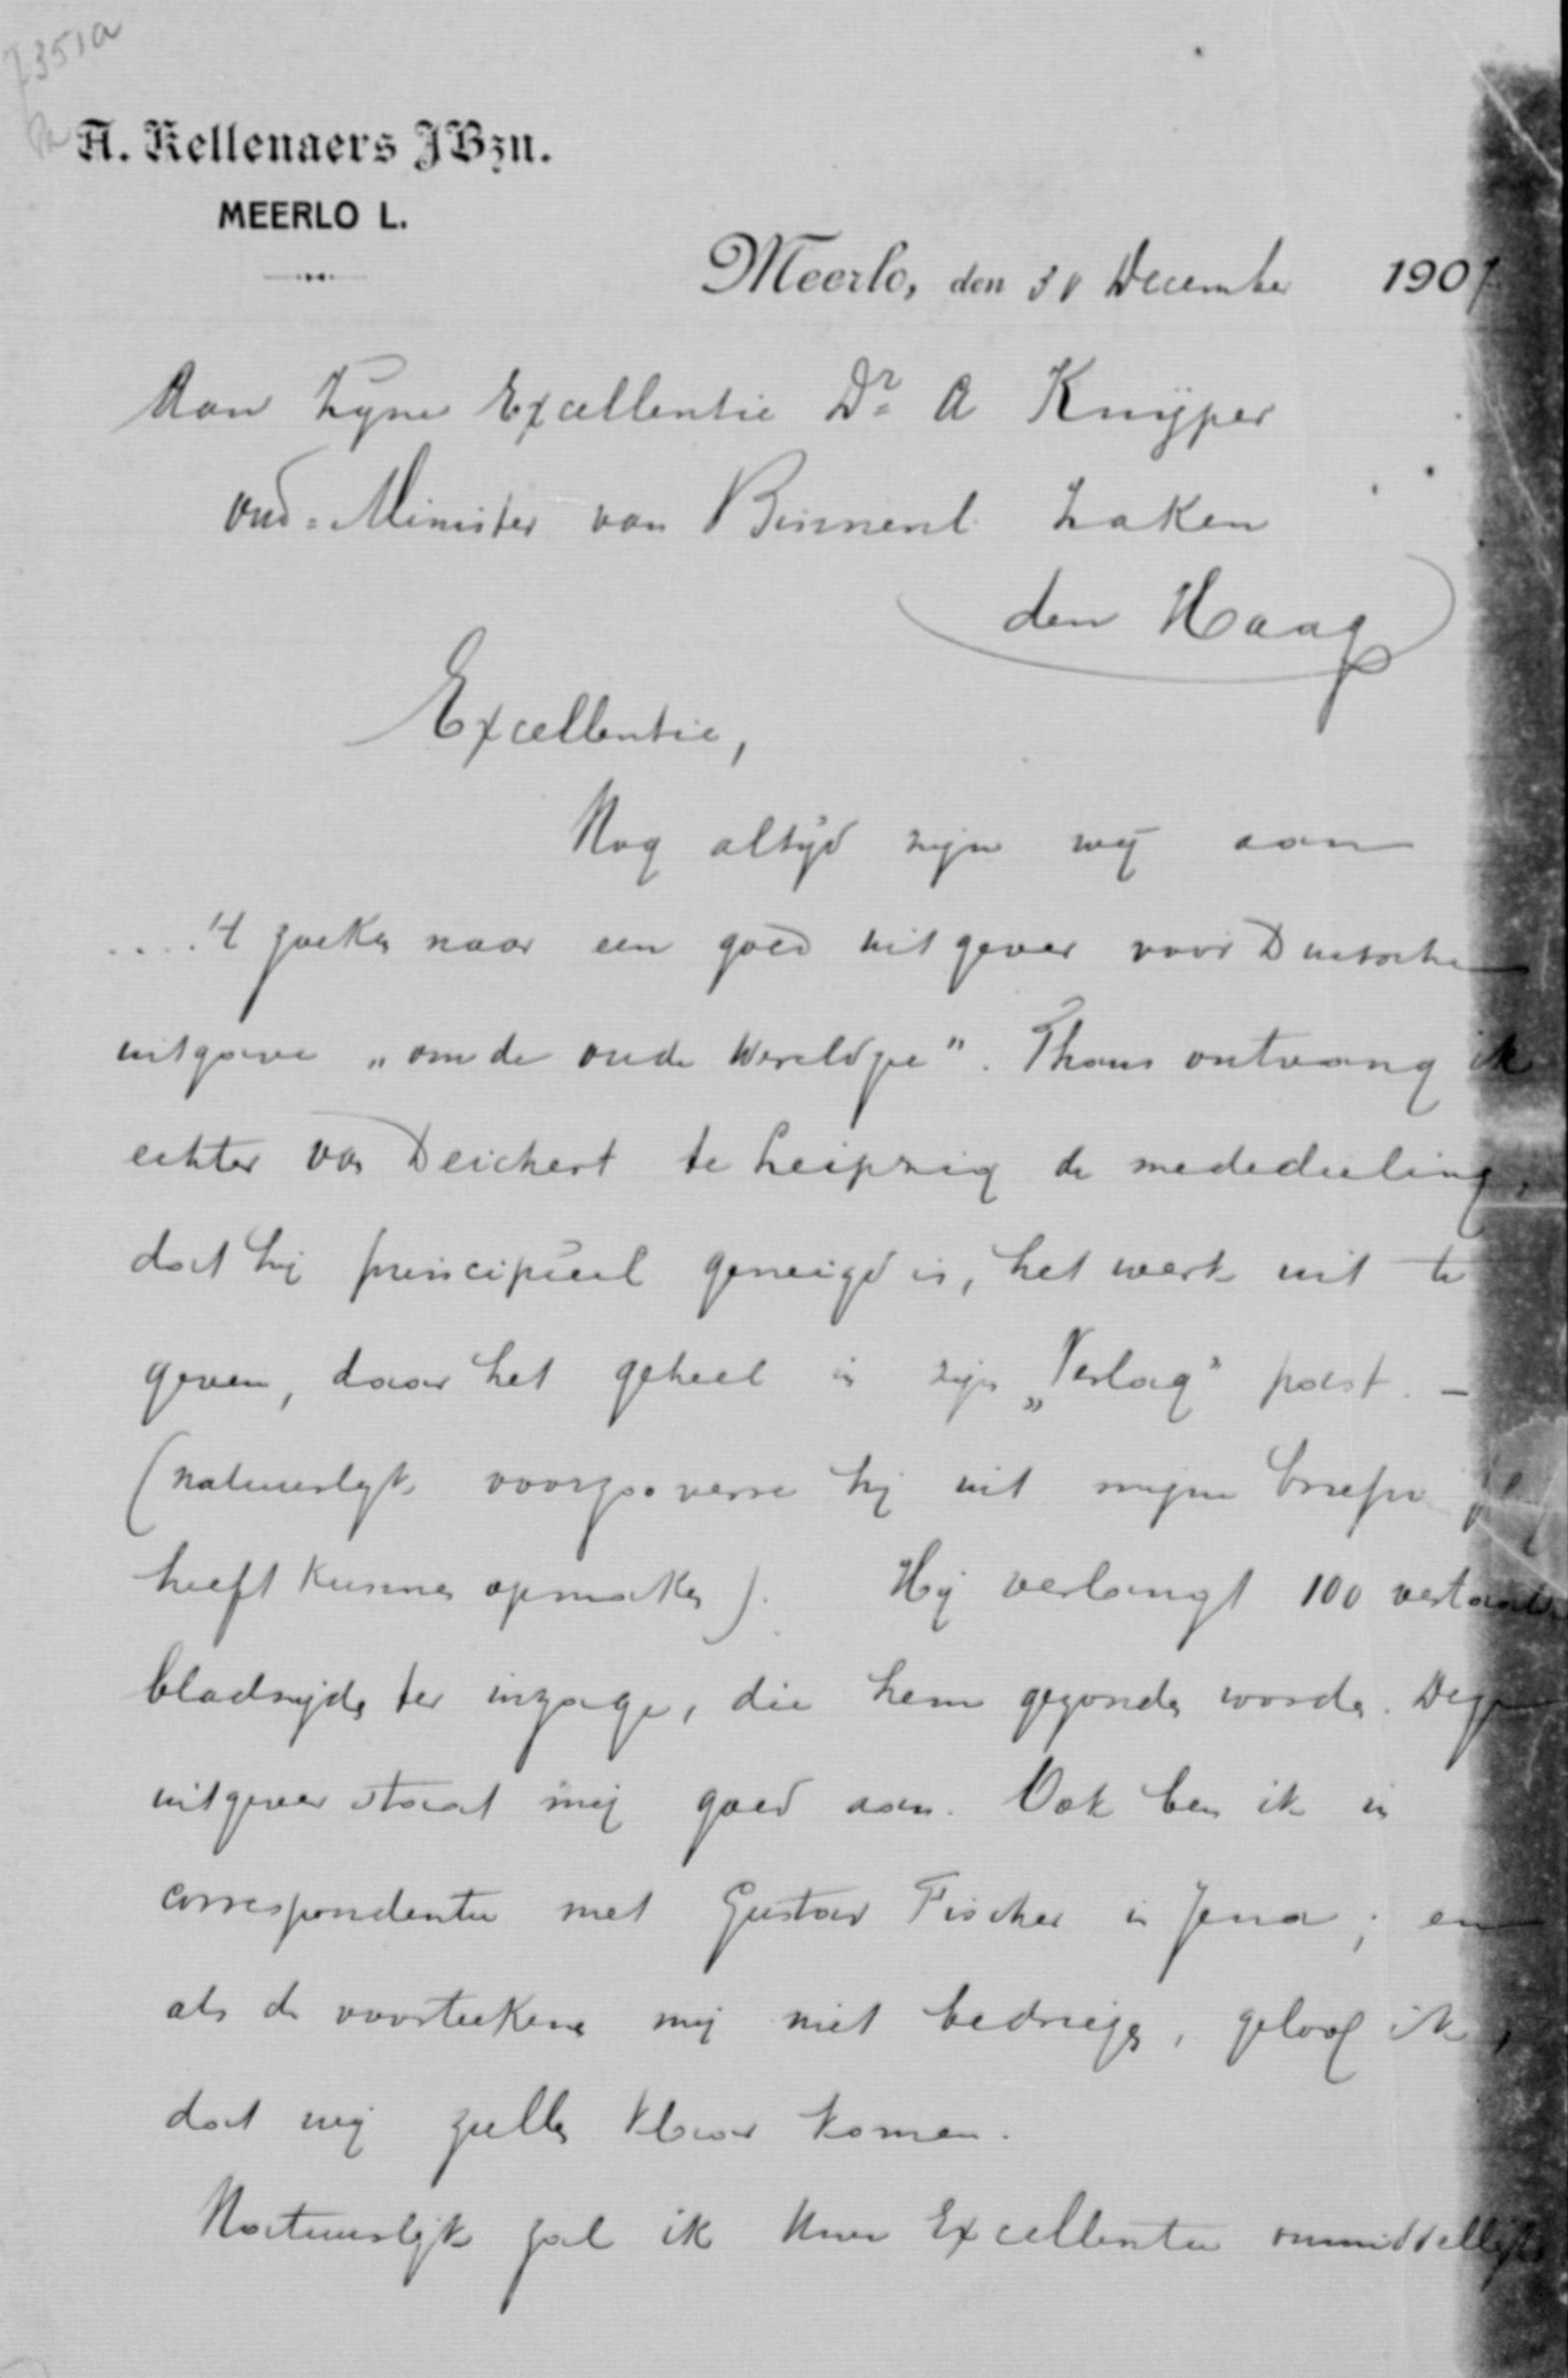 7351a
A. Kellenaers JBzn.
MEERLO L.
Meerlo, den 30 December 1907
Aan Zyne Excellentie Dr. A Kuyper
Oud-Minister van Binnenl. Zaken
den Haag
Excellentie,
Nog altijd zijn wij aan
....'t zoeken naar een goed uitgever voor Duitsche
uitgave „om de oude Wereldzee". Thans ontvang ik
echter van Deichert te Leipzig de mededeeling,
dat hij principieel geneigd is, het werk uit te
geven, daar het geheel in zijn „Verlag" past. —
(natuurlijk voorzoo verre hij uit mijne brieven
heeft kunnen opmaken). Hij verlangt 100 vertaalde
bladzijden ter inzage, die hem gezonden worden. Deze
uitgever staat mij goed aan. Ook ben ik in
correspondentie met Gustav Fischer in Jena; en
als de voorteekens mij niet bedriegen, geloof ik,
dat wij zullen klaar komen.
Natuurlijk zal ik Uwe Excellentie onmiddellijk